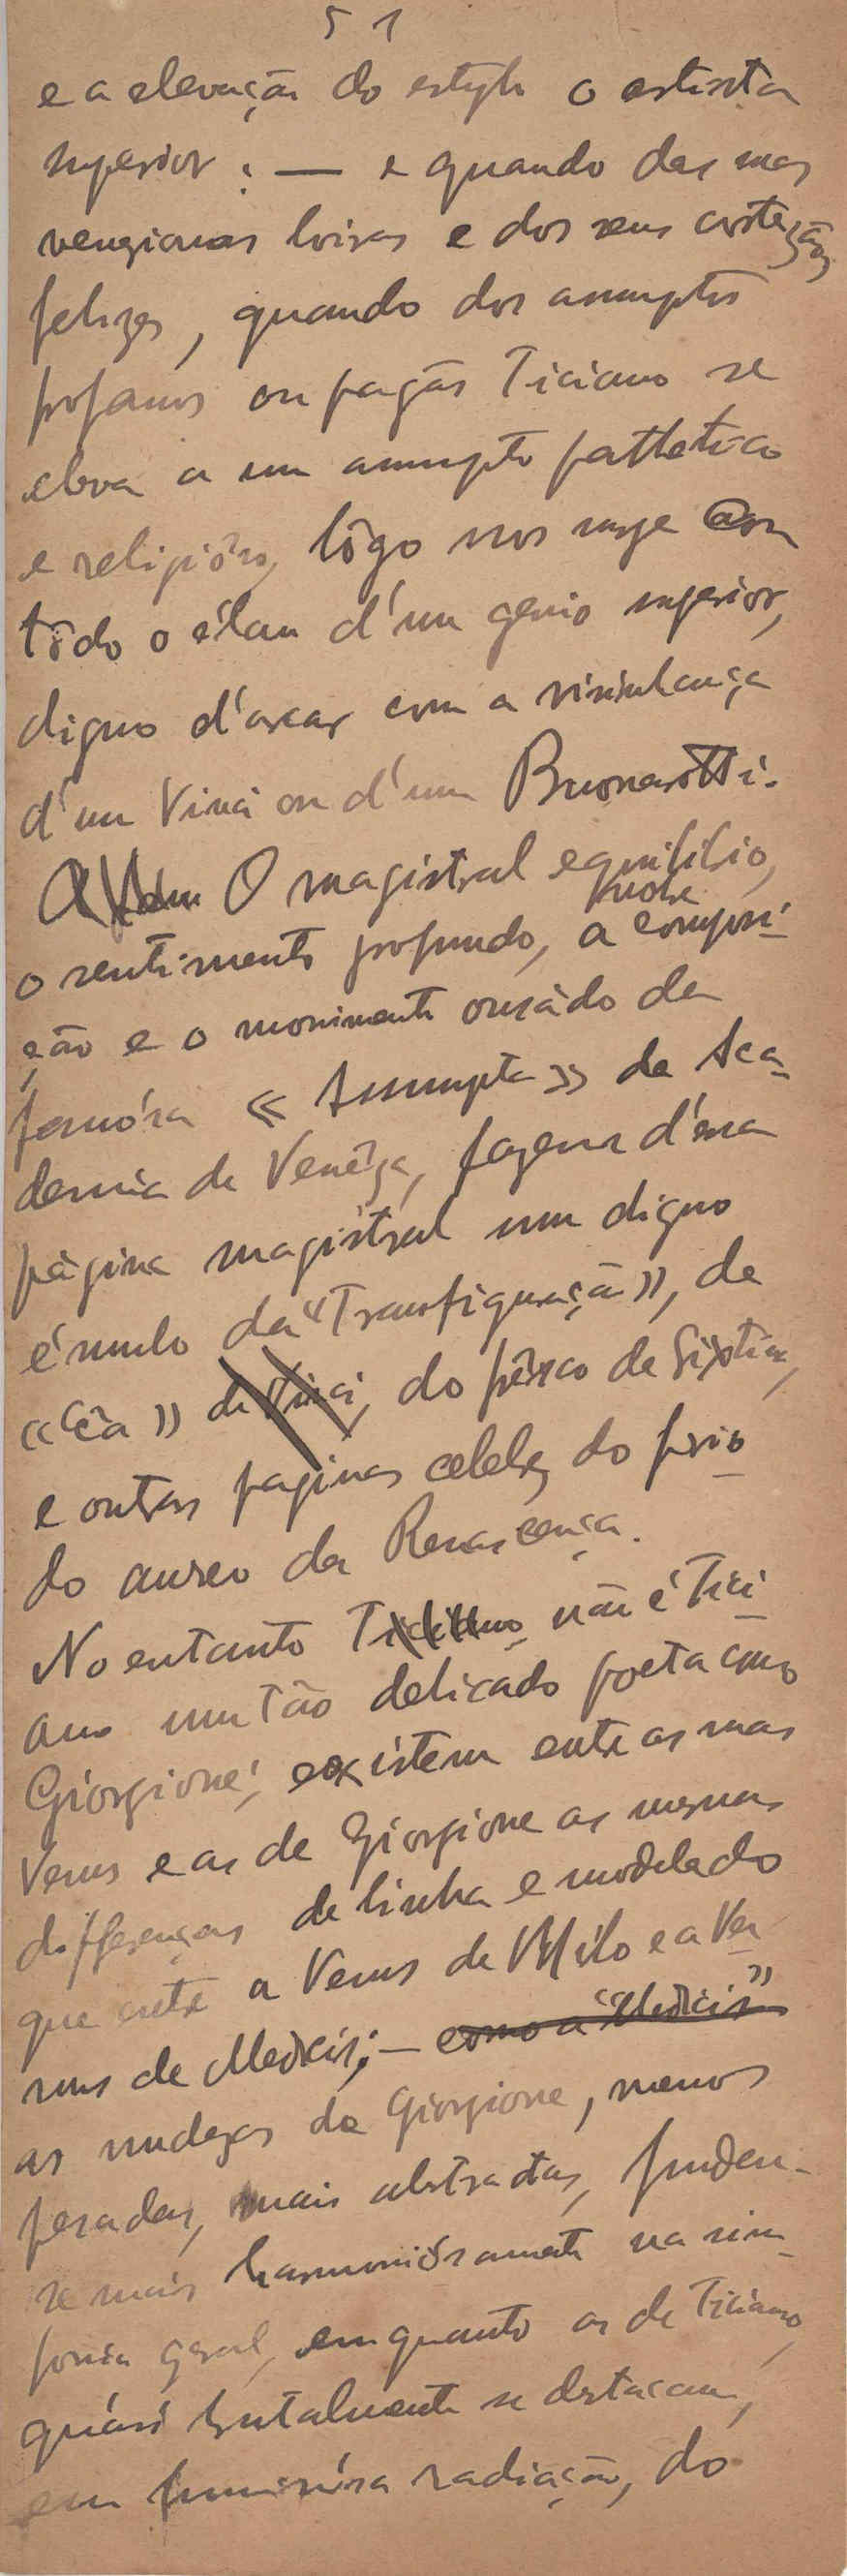 51
e a elevação do estylo o artista
superior : — e quando das suas
venezianas loiras e dos seus cortezãos
felizes, quando dos assumptos
profanos ou pagãos Ticiano se
eleva a um assumpto pathetico
e religiôso, lôgo nos surge com
tôdo o élan d'um genio superior,
digno d'arcar com a visinhança
d'um Vinci ou d'um Buonarotti.
O magistral equilibrio,
o sentimento profundo, a nobre composi-
ção e o movimento ousádo da
famósa « Assumpta » da Aca-
demia de Venêza, fazem d'essa
página magistral um digno
émulo da "Transfiguração», da
«Cêa» de Vinci, do frêsco da Sixtina,
e outras paginas celebres do perio-
do aureo da Renascença.
No entanto Ticiano não é Tici-
ano um tão delicado poeta como
Giorgione; existem entre as suas
Venus e as de Giorgione as mesmas
differenças de linha e modelado
que entre a Venus de Milo e a Ve-
nus de Medicis; — como a "Medicis"
as nudezas de Giorgione, menos
pesadas, mais abstractas, fundem-
se mais harmoniósamente na sim-
fonia geral, emquanto as de Ticiano,
quási brutalmente se destacam,
em luminósa radiação, do